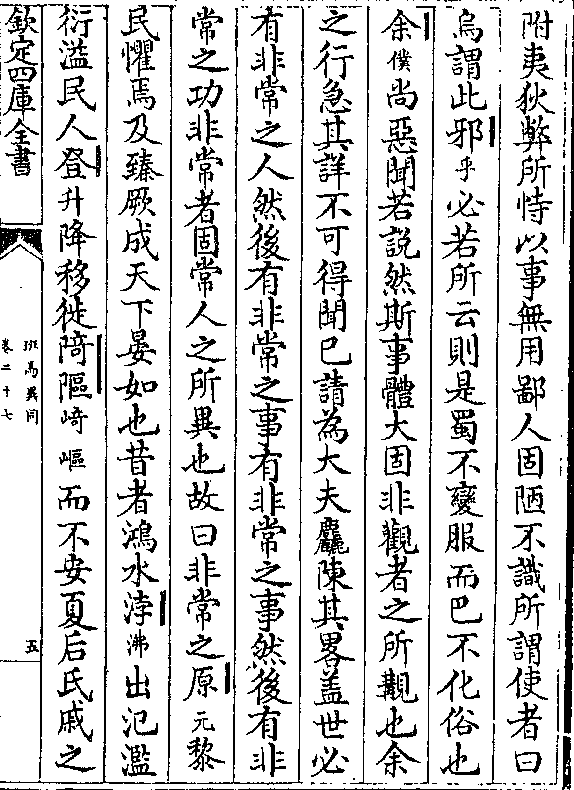 附夷狄弊所恃以事無用鄙人固陋不識所謂使者曰
烏謂此邪乎必若所云則是蜀不變服而巴不化俗也
余僕尚惡聞若說然斯事體大固非觀者之所覯也余
之行急其詳不可得聞已請為大夫麤陳其畧蓋世必
有非常之人然後有非常之事有非常之事然後有非
常之功非常者固常人之所異也故曰非常之原元黎
民懼焉及臻厥成天下晏如也昔者鴻水浡沸出氾濫
衍溢民人登升降移徙陭𨻲崎嶇而不安夏后氏戚之
欽定四庫全書
班馬異同
卷二十七
五